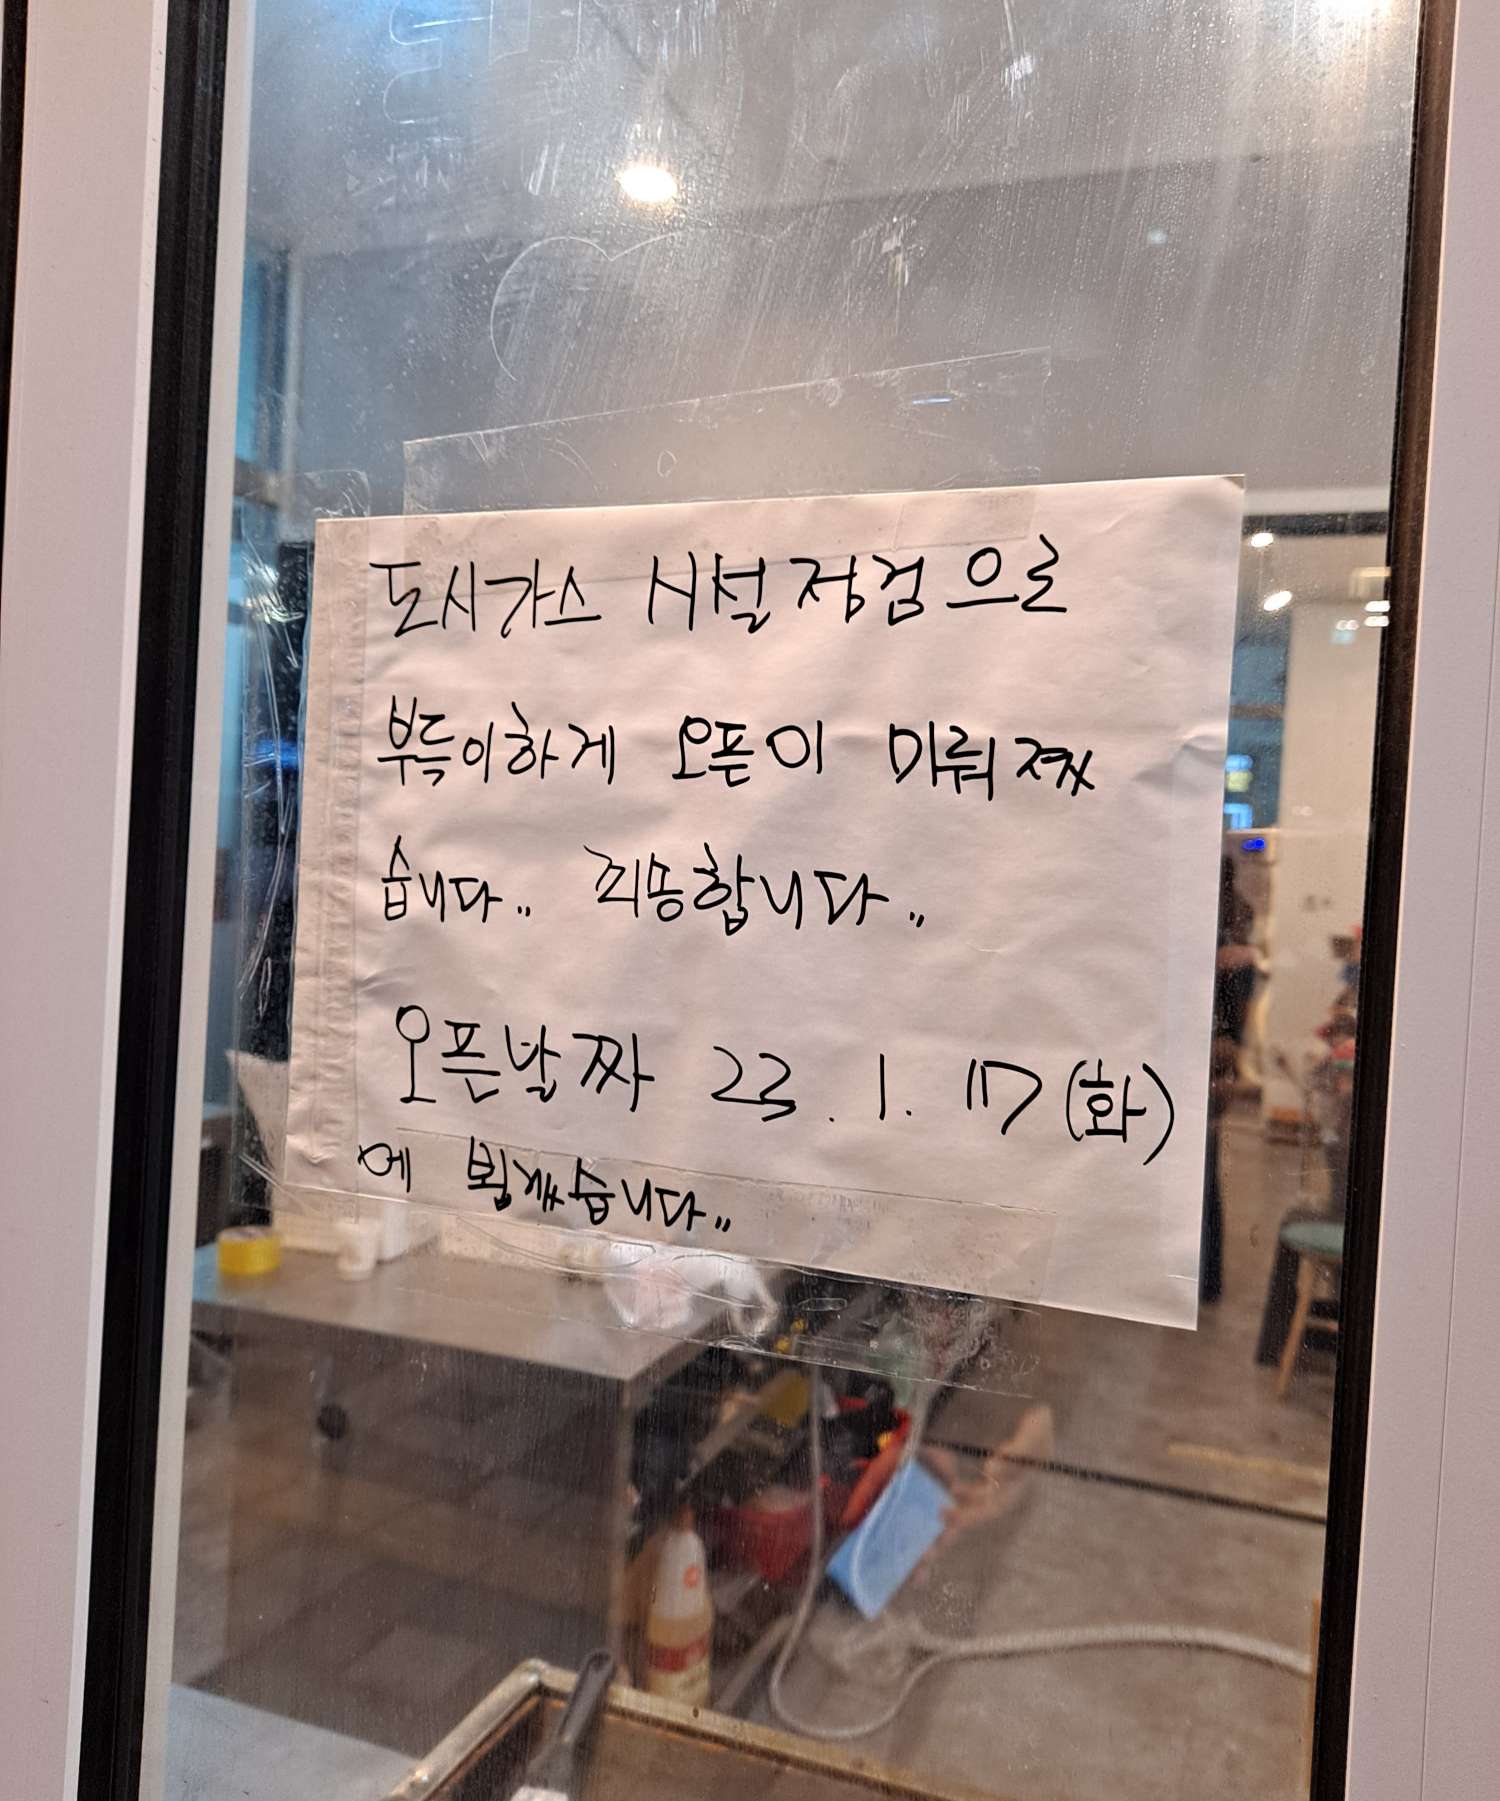 도시가스 시설점검으로
부득이하게 오픈이 미뤄졌
습니다.. 죄송합니다..
오픈날짜 23. 1. 17 (화)
에 뵙겠습니다..